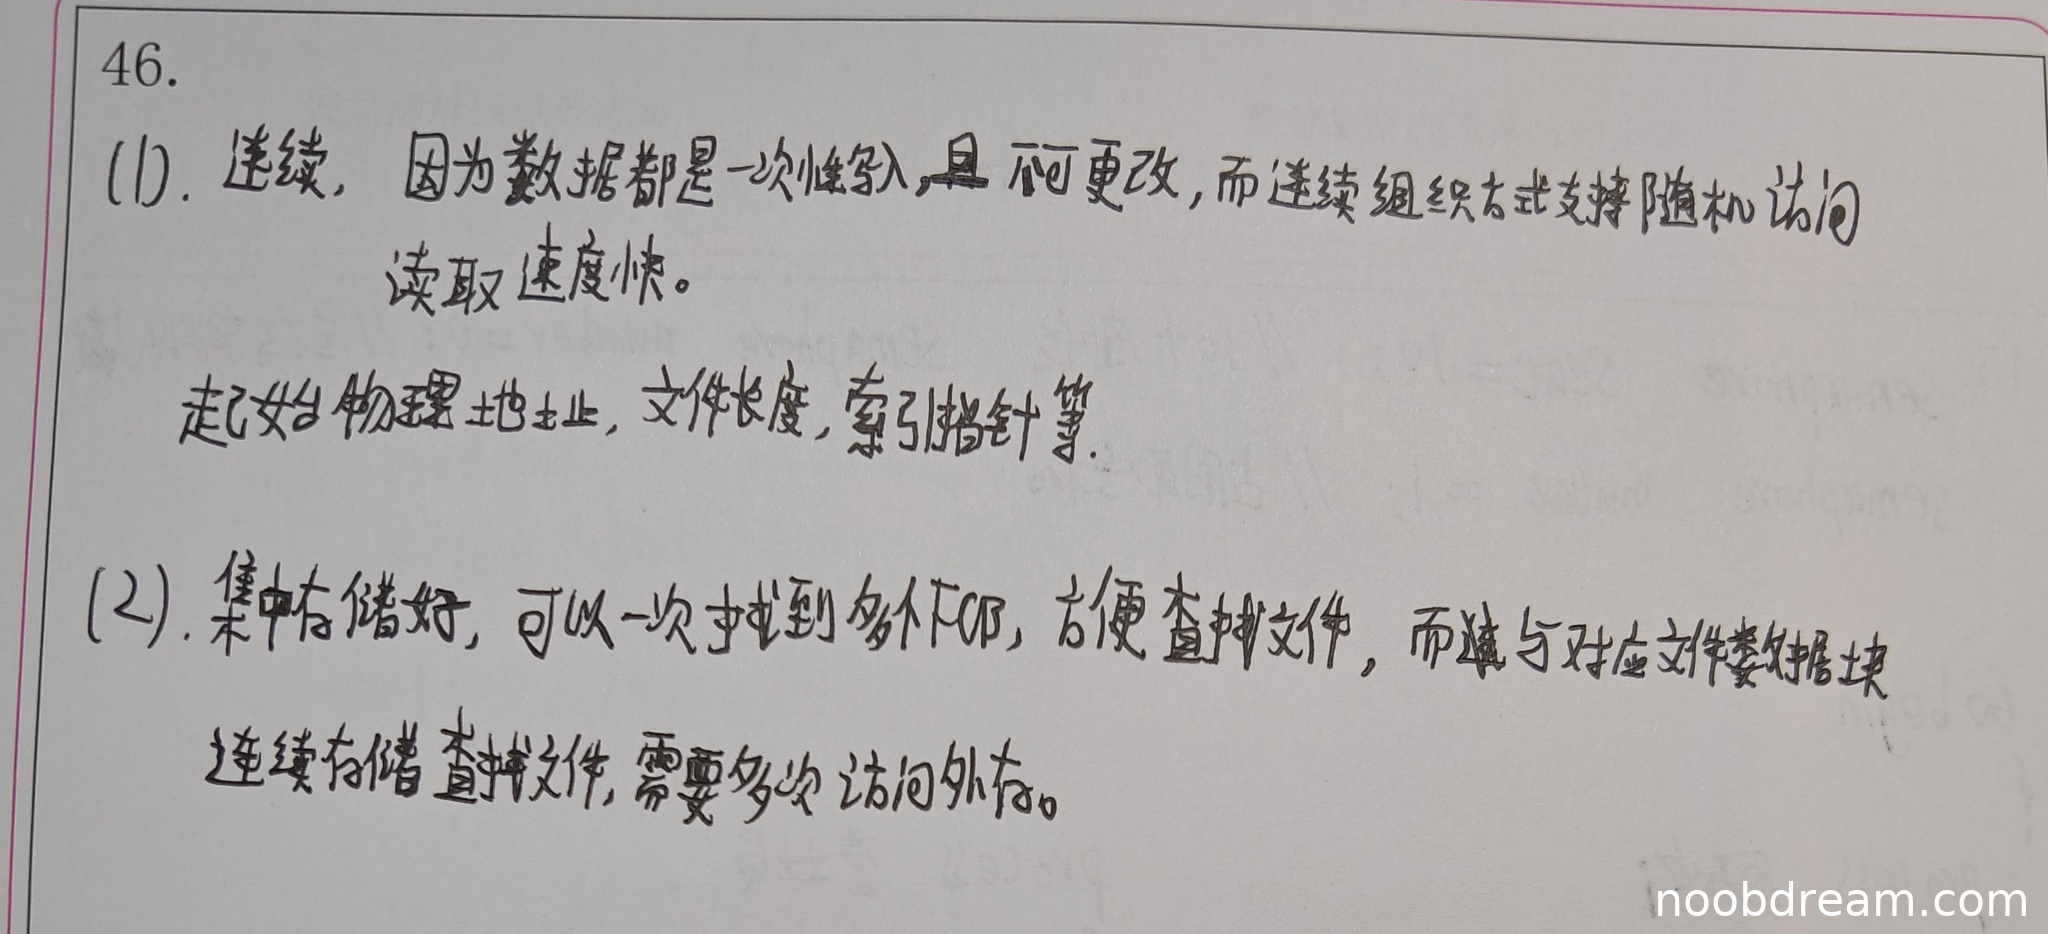 46.
(1). 连续, 因为数据都是一次性写入,且不可更改,而连续组织方式支持随机访问
读取速度快。
起始物理地址,文件长度,索引指针等.
(2). 集中存储好, 可以一次找到多个FCB, 方便查找文件, 而与对应文件数据块
连续存储查找文件,需要多次访问外存。
noobdream.com